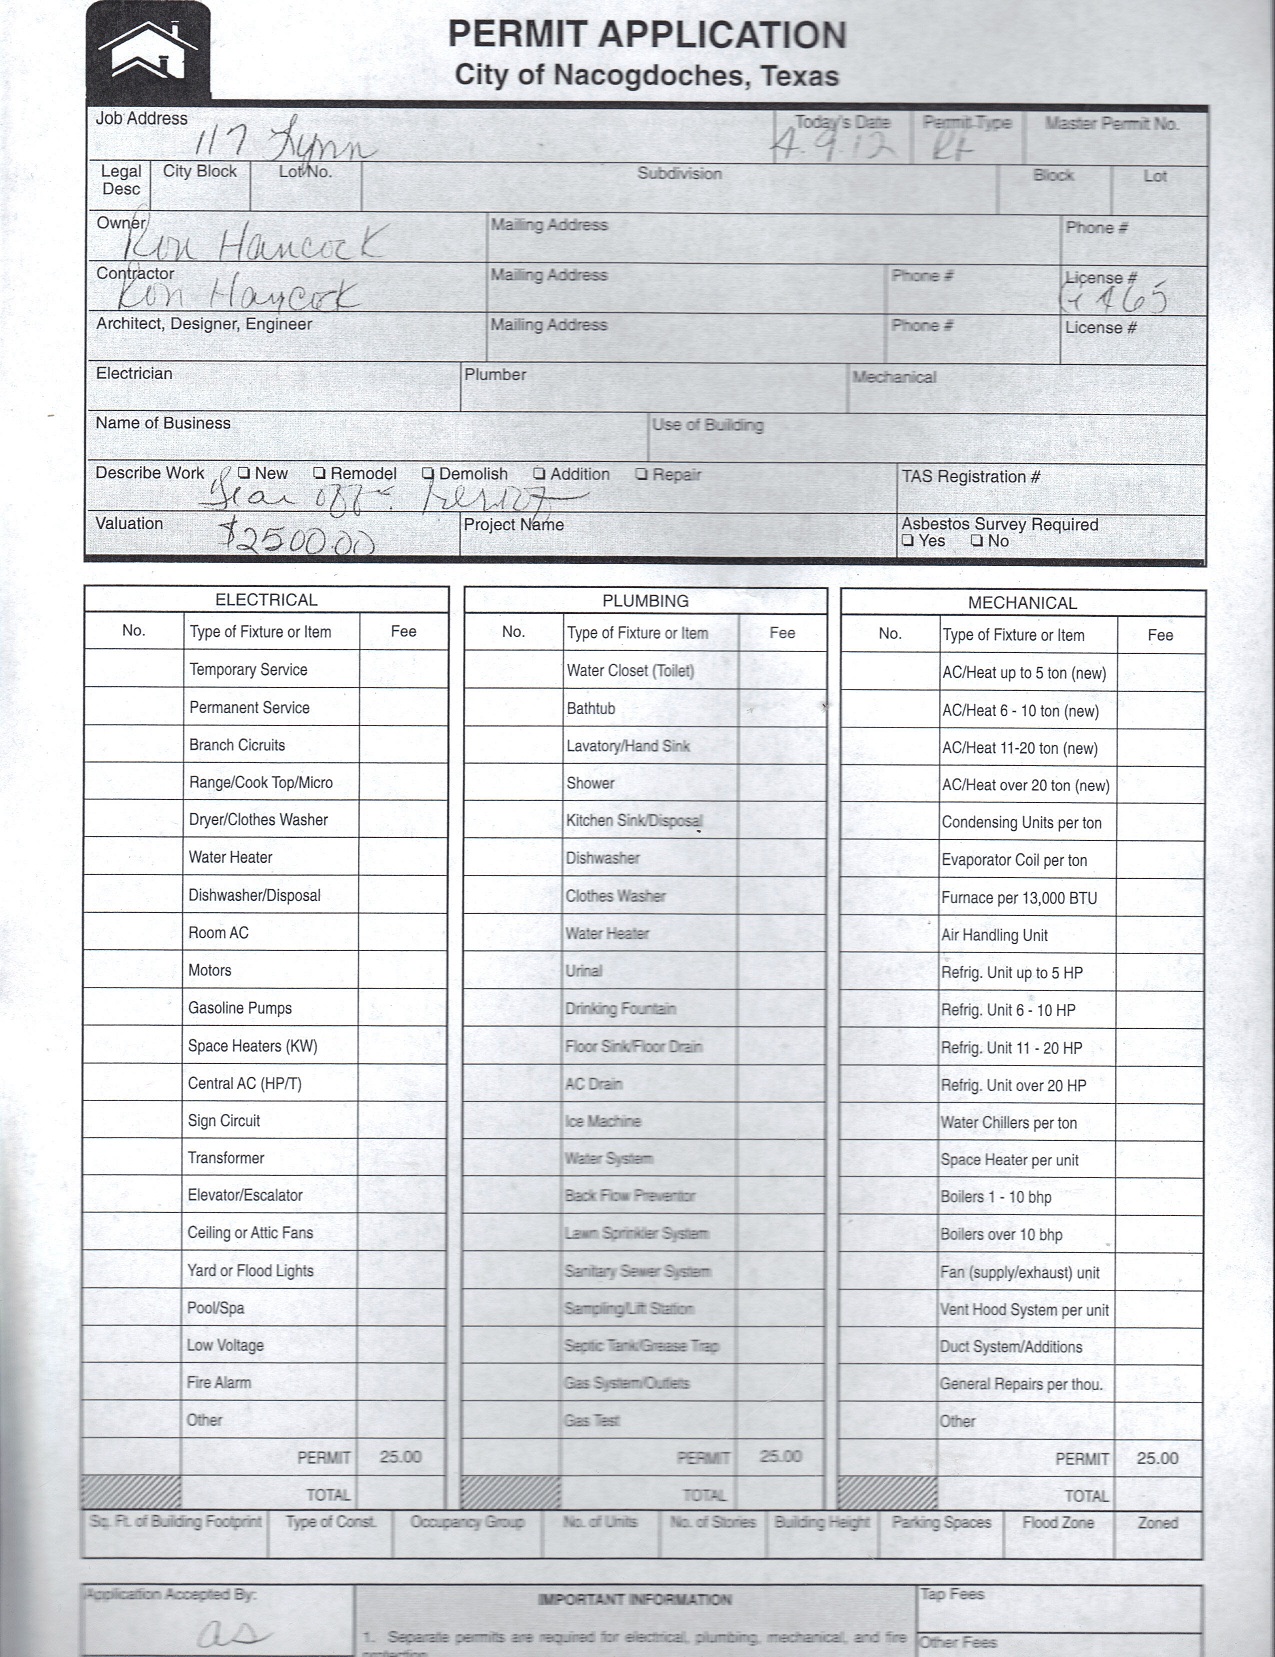 PERMIT APPLICATION
City of Nacogdoches, Texas
Job Address 117 Lynn
Today's Date 4.9.12
Permit Type Rf
Master Permit No.
Legal Desc
City Block
Lot No.
Subdivision
Block
Lot
Owner Ron Hancock
Mailing Address
Phone #
Contractor Ron Hancock
Mailing Address
Phone #
License #
Architect, Designer, Engineer
Mailing Address
Phone #
License #
Electrician
Plumber
Mechanical
Name of Business
Use of Building
Describe Work ❏ New ❏ Remodel ❏ Demolish ❏ Addition ❏ Repair
Tear off
TAS Registration #
Valuation $2500.00
Project Name
Asbestos Survey Required
❏ Yes ❏ No
ELECTRICAL
No. Type of Fixture or Item Fee
Temporary Service
Permanent Service
Branch Cicruits
Range/Cook Top/Micro
Dryer/Clothes Washer
Water Heater
Dishwasher/Disposal
Room AC
Motors
Gasoline Pumps
Space Heaters (KW)
Central AC (HP/T)
Sign Circuit
Transformer
Elevator/Escalator
Ceiling or Attic Fans
Yard or Flood Lights
Pool/Spa
Low Voltage
Fire Alarm
Other
PERMIT 25.00
TOTAL
PLUMBING
No. Type of Fixture or Item Fee
Water Closet (Toilet)
Bathtub
Lavatory/Hand Sink
Shower
Kitchen Sink/Disposal
Dishwasher
Clothes Washer
Water Heater
Urinal
Drinking Fountain
Floor Sink/Floor Drain
AC Drain
Ice Machine
Water System
Back Flow Preventor
Lawn Sprinkler System
Sanitary Sewer System
Sampling/Lift Station
Septic Tank/Grease Trap
Gas System/Outlets
Gas Test
PERMIT 25.00
TOTAL
MECHANICAL
No. Type of Fixture or Item Fee
AC/Heat up to 5 ton (new)
AC/Heat 6 - 10 ton (new)
AC/Heat 11-20 ton (new)
AC/Heat over 20 ton (new)
Condensing Units per ton
Evaporator Coil per ton
Furnace per 13,000 BTU
Air Handling Unit
Refrig. Unit up to 5 HP
Refrig. Unit 6 - 10 HP
Refrig. Unit 11 - 20 HP
Refrig. Unit over 20 HP
Water Chillers per ton
Space Heater per unit
Boilers 1 - 10 bhp
Boilers over 10 bhp
Fan (supply/exhaust) unit
Vent Hood System per unit
Duct System/Additions
General Repairs per thou.
Other
PERMIT 25.00
TOTAL
Sq. Ft. of Building Footprint
Type of Const.
Occupancy Group
No. of Units
No. of Stories
Building Height
Parking Spaces
Flood Zone
Zoned
Application Accepted By:
as
IMPORTANT INFORMATION
1. Separate permits are required for electrical, plumbing, mechanical, and fire
protection.
Tap Fees
Other Fees